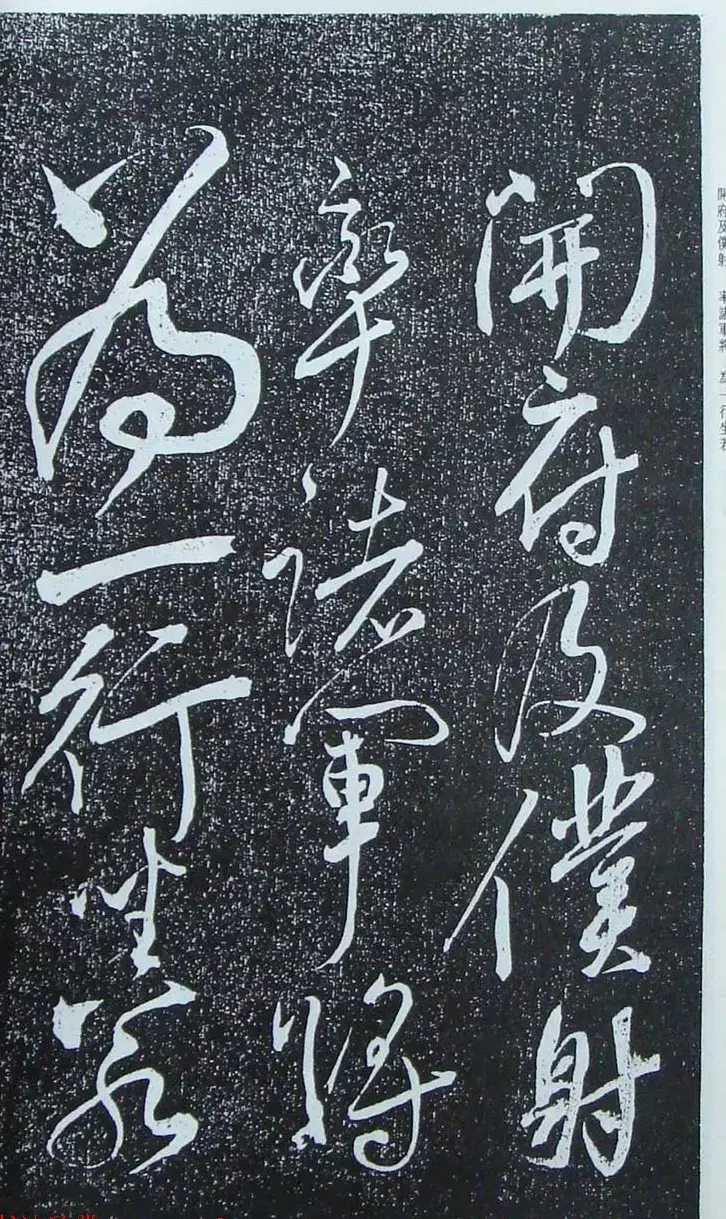 開府及僕射
率諸軍將
為一行坐若
開府及僕射 率諸軍將 為一行坐若